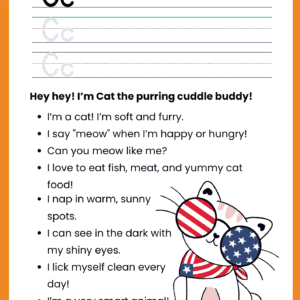 Cc
Cc
Cc
Hey hey! I'm Cat the purring cuddle buddy!
• I'm a cat! I'm soft and furry.
• I say "meow" when I'm happy or hungry!
• Can you meow like me?
• I love to eat fish, meat, and yummy cat
food!
• I nap in warm, sunny
spots.
• I can see in the dark with
my shiny eyes.
• I lick myself clean every
day!
• I'm a very smart animal!